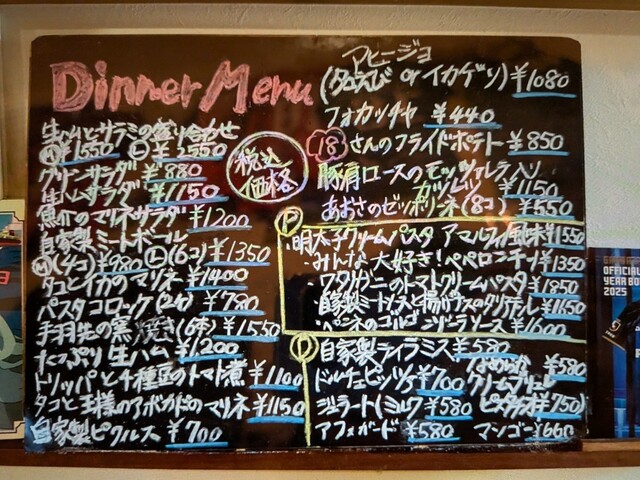 Dinner Menu
生ハムとサラミの盛り合わせ
Ⓜ¥1550 Ⓛ¥2550
グリーンサラダ ¥880
生ハムサラダ ¥1150
魚介のマリネサラダ ¥1200
自家製ミートボール
Ⓜ(4コ)¥980 Ⓛ(6コ)¥1350
タコとイカのマリネ ¥1400
パスタコロッケ(2ケ) ¥780
手羽先の窯焼き(6本) ¥1550
たっぷり生ハム ¥1200
トリッパと千種豆のトマト煮 ¥1100
タコと王様のアボカドのマリネ ¥1150
自家製ピクルス ¥700
税込価格
アヒージョ
(タコえび or イカゲソ) ¥1080
フォカッチャ ¥440
18さんのフライドポテト ¥850
豚肩ロースのモッツァレラ入り
カツレツ ¥1150
あおさのゼッポリーネ(8コ) ¥550
P
・明太子クリームパスタ アマルフィ風味 ¥1550
・みんな大好き!ペペロンチーノ ¥1350
・ワタリガニのトマトクリームパスタ ¥1850
・自家製ミートソースと のタリアテレ ¥1650
・ペンネのゴルゴンゾーラソース ¥1600
D
自家製ティラミス ¥580
なめらか
クリームブリュレ ¥580
ドルチェピッツァ ¥700
ジェラート(ミルク ¥580 ピスタチオ ¥750)
アフォガード ¥580 マンゴー ¥660
OFFICIAL
YEAR BO
2025